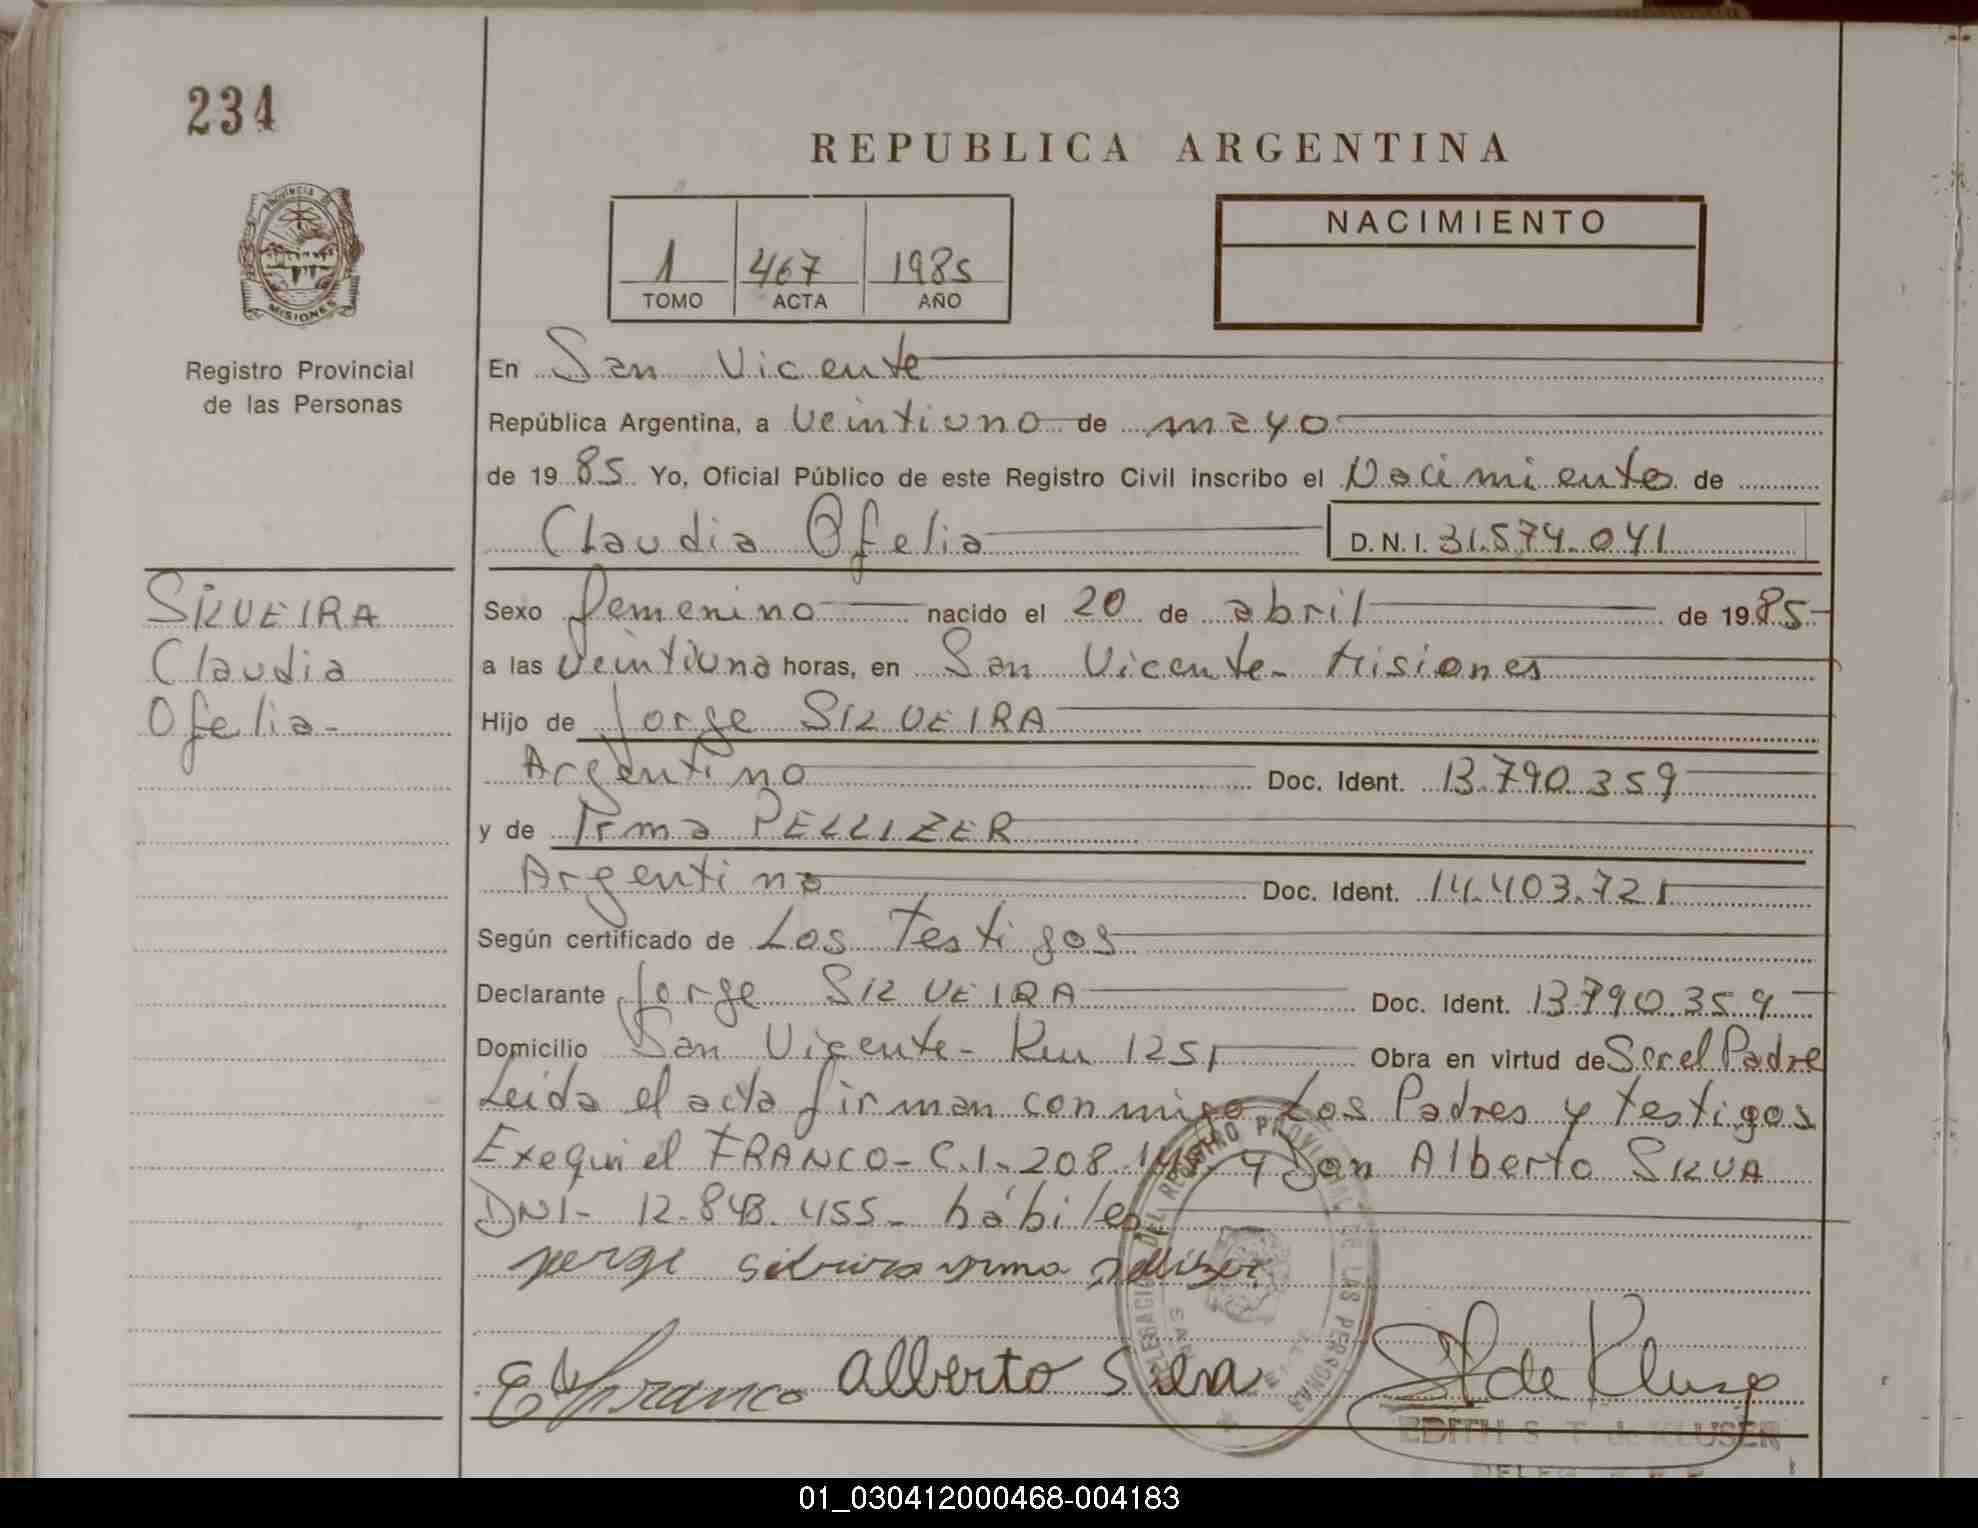 234
REPUBLICA ARGENTINA
PROVINCIA DE
MISIONES
1 467 1985
TOMO ACTA AÑO
NACIMIENTO
Registro Provincial
de las Personas
En San Vicente
República Argentina, a veintiuno de mayo
de 1985 Yo, Oficial Público de este Registro Civil inscribo el Nacimiento de
Claudia Ofelia D.N.I. 31.574.041
SILVEIRA
Claudia
Ofelia-
Sexo femenino nacido el 20 de abril de 1985
a las veintiuna horas, en San Vicente- Misiones
Hijo de Jorge SILVEIRA
Argentino Doc. Ident. 13.790.359
y de Irma PELLIZER
Argentina Doc. Ident. 14.403.721
Según certificado de Los Testigos
Declarante Jorge SILVEIRA Doc. Ident. 13.790.359
Domicilio San Vicente- Km 1251 Obra en virtud de Ser el Padre
Leida el acta firman conmigo Los Padres y testigos
Exequiel FRANCO- C.I. 208. y Don Alberto SILVA
DNI- 12.843.455- hábiles
jorge silveira yrma pellizer
DELEGACION DEL REGISTRO PROVINCIAL DE LAS PERSONAS
E Franco Alberto Silva de Kluser
EDITH S T de KLUSER
01_030412000468-004183